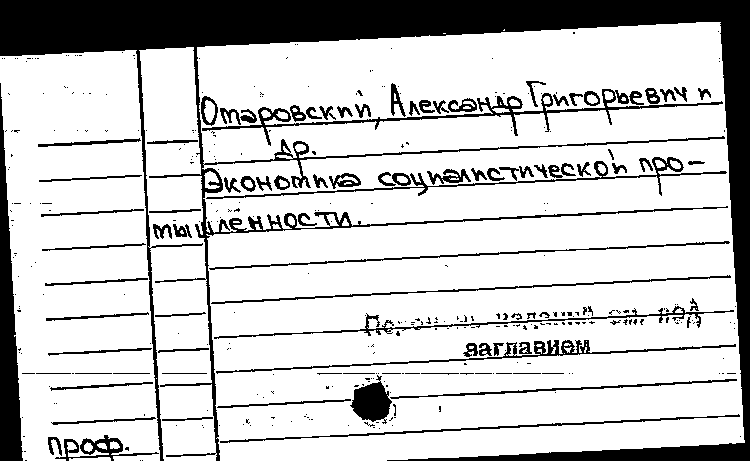 Отаровский, Александр Григорьевич и
др.
Экономика социалистической про-
мышленности.
Перечень изданий см. под
заглавием
проф.